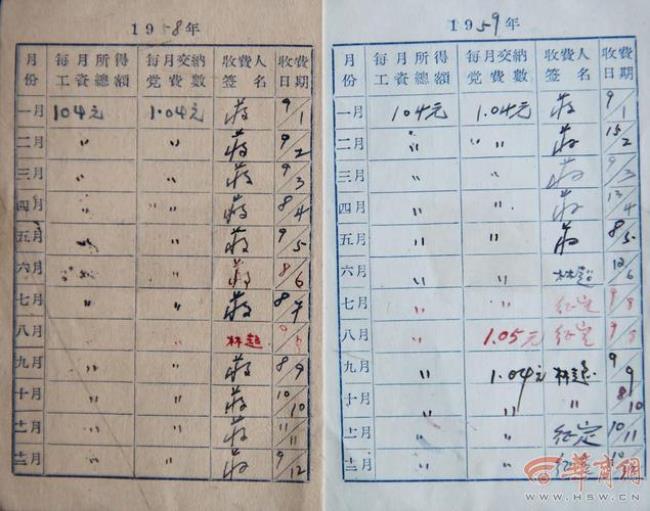 1958年
月份 每月所得工資總額 每月交納党費數 收費人簽名 收費日期
一月 104元 1.04元 蒋 9/1
二月 〃 〃 蒋 9/2
三月 〃 〃 蒋 9/3
四月 〃 〃 蒋 8/4
五月 〃 〃 蒋 9/5
六月 〃 〃 蒋 8/6
七月 〃 〃 蒋 8/7
八月 〃 〃 林超
九月 〃 〃 蒋 8/9
十月 〃 〃 蒋 10/10
十一月 〃 〃 蒋 11/11
十二月 〃 〃 蒋 9/12
1959年
月份 每月所得工資總額 每月交納党費數 收費人簽名 收費日期
一月 104元 1.04元 蒋 9/1
二月 〃 〃 蒋 15/2
三月 〃 〃 蒋 9/3
四月 〃 〃 蒋 13/4
五月 〃 〃 蒋 8/5
六月 〃 〃 林超 12/6
七月 〃 〃
八月 〃 1.05元
九月 〃 1.04元 林超 9/9
十月 〃 〃 〃 8/10
十一月 〃 〃 10/11
十二月 〃 〃
華商網
WWW.HSW.CN